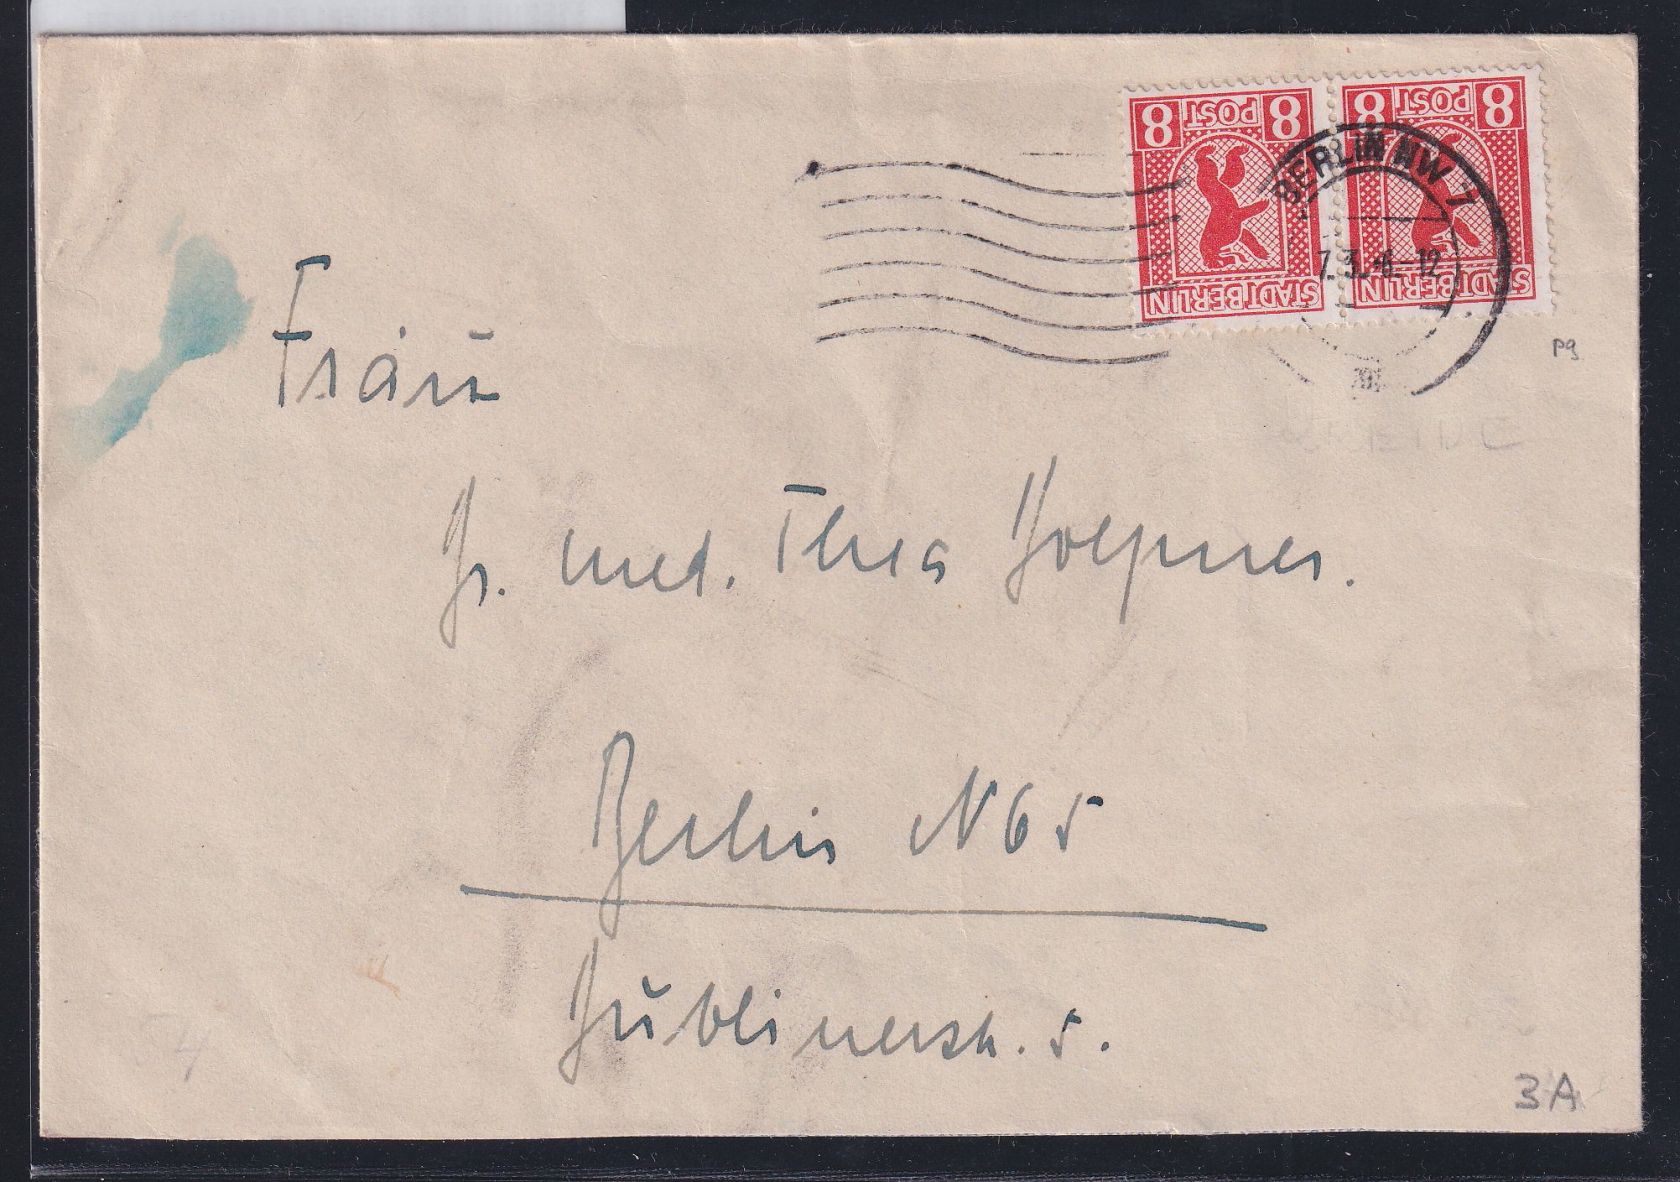 8 POST 8
STADT BERLIN
8 POST 8
STADT BERLIN
BERLIN NW 7
Frau
Dr. med. Thea Doepner.
Berlin N65
Dublinerstr. 5.
3A